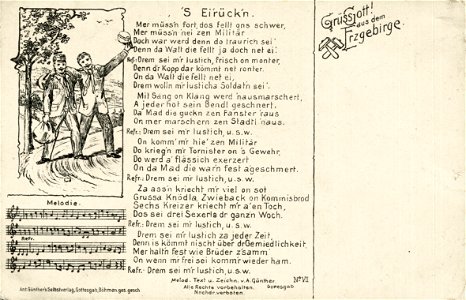 'S Eirück'n.
Mer müss'n fort, dos fellt ons schwer,
Mer müss'n nei zen Militär
Doch war werd denn do traurich sei'
Denn da Walt die fellt ja doch net ei'.
Ref.: Drem sei m'r lustich, frisch on monter,
Denn d'r Kopp dar kömmt net ronter.
On da Walt die fellt net ei,
Drem wolln m'r lusticha Soldatn sei'.
Mit Sang on Klang werd 'nausmarschert,
A jeder hot sein Bendl geschnert.
Da' Mad die guckn zen Fanster 'raus
On mer marschern zen Stadtl 'naus.
Ref.: Drem sei m'r lustich, u.s.w.
On komm' mr hie' zen Militär
Do krieg'n m'r Tornister on 's Gewehr,
Do werd a' flässich exerzert
On da Mad die warn fest ageschmert.
Ref.: Drem sei m'r lustich, u.s.w.
Za ass'n kriecht m'r viel on sot
Grussa Knödla, Zwieback on Kommisbrod
Sechs Kreizer kriecht m'r a' en Toch,
Dos sei drei Sexerla dr ganzn Woch.
Ref.: Drem sei m'r lustich, u.s.w.
Drem sei m'r lustich za jeder Zeit,
Denn is kömmt nischt über dr Gemiedlichkeit,
Mer haltn fest wie Brüder z'samm
On wenn mr frei sei komm'r wieder ham.
Ref.: Drem sei m'r lustich, u.s.w.
Melod. Text u. Zeichn. v. A. Günther. No VII
Alle Rechte vorbehalten. Gottesgab
Nachdr. verboten.
Melodie.
Refr.
Ant. Günther's Selbstverlag, Gottesgab, Böhmen. ges. gesch.
Grüss Gott!
aus dem
Erzgebirge.